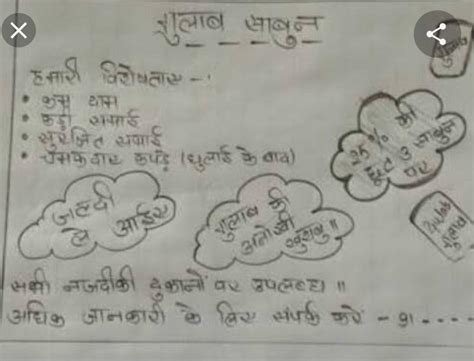 गुलाब साबुन
गुलाब
हमारी विशेषताएं -
• कम दाम
• कड़ी सफाई
• सुरक्षित सफाई
• चमकदार कपड़े (धुलाई के बाद)
25% की
छूट 3 साबुन
पर
जल्दी
ले आईए
गुलाब की
अनोखी
खुशबू॥
गुलाब
सभी नजदीकी दुकानों पर उपलब्ध॥
अधिक जानकारी के लिए संपर्क करें - 91....